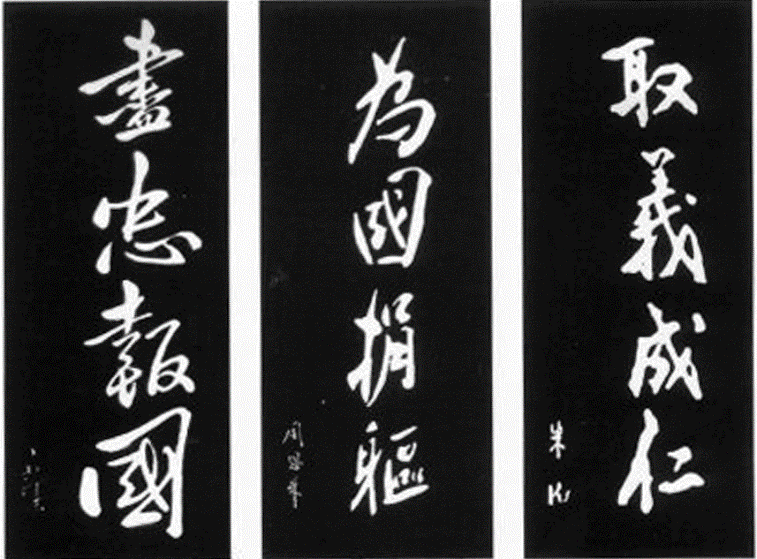 取義成仁
朱德
為國捐軀
周恩來
盡忠報國